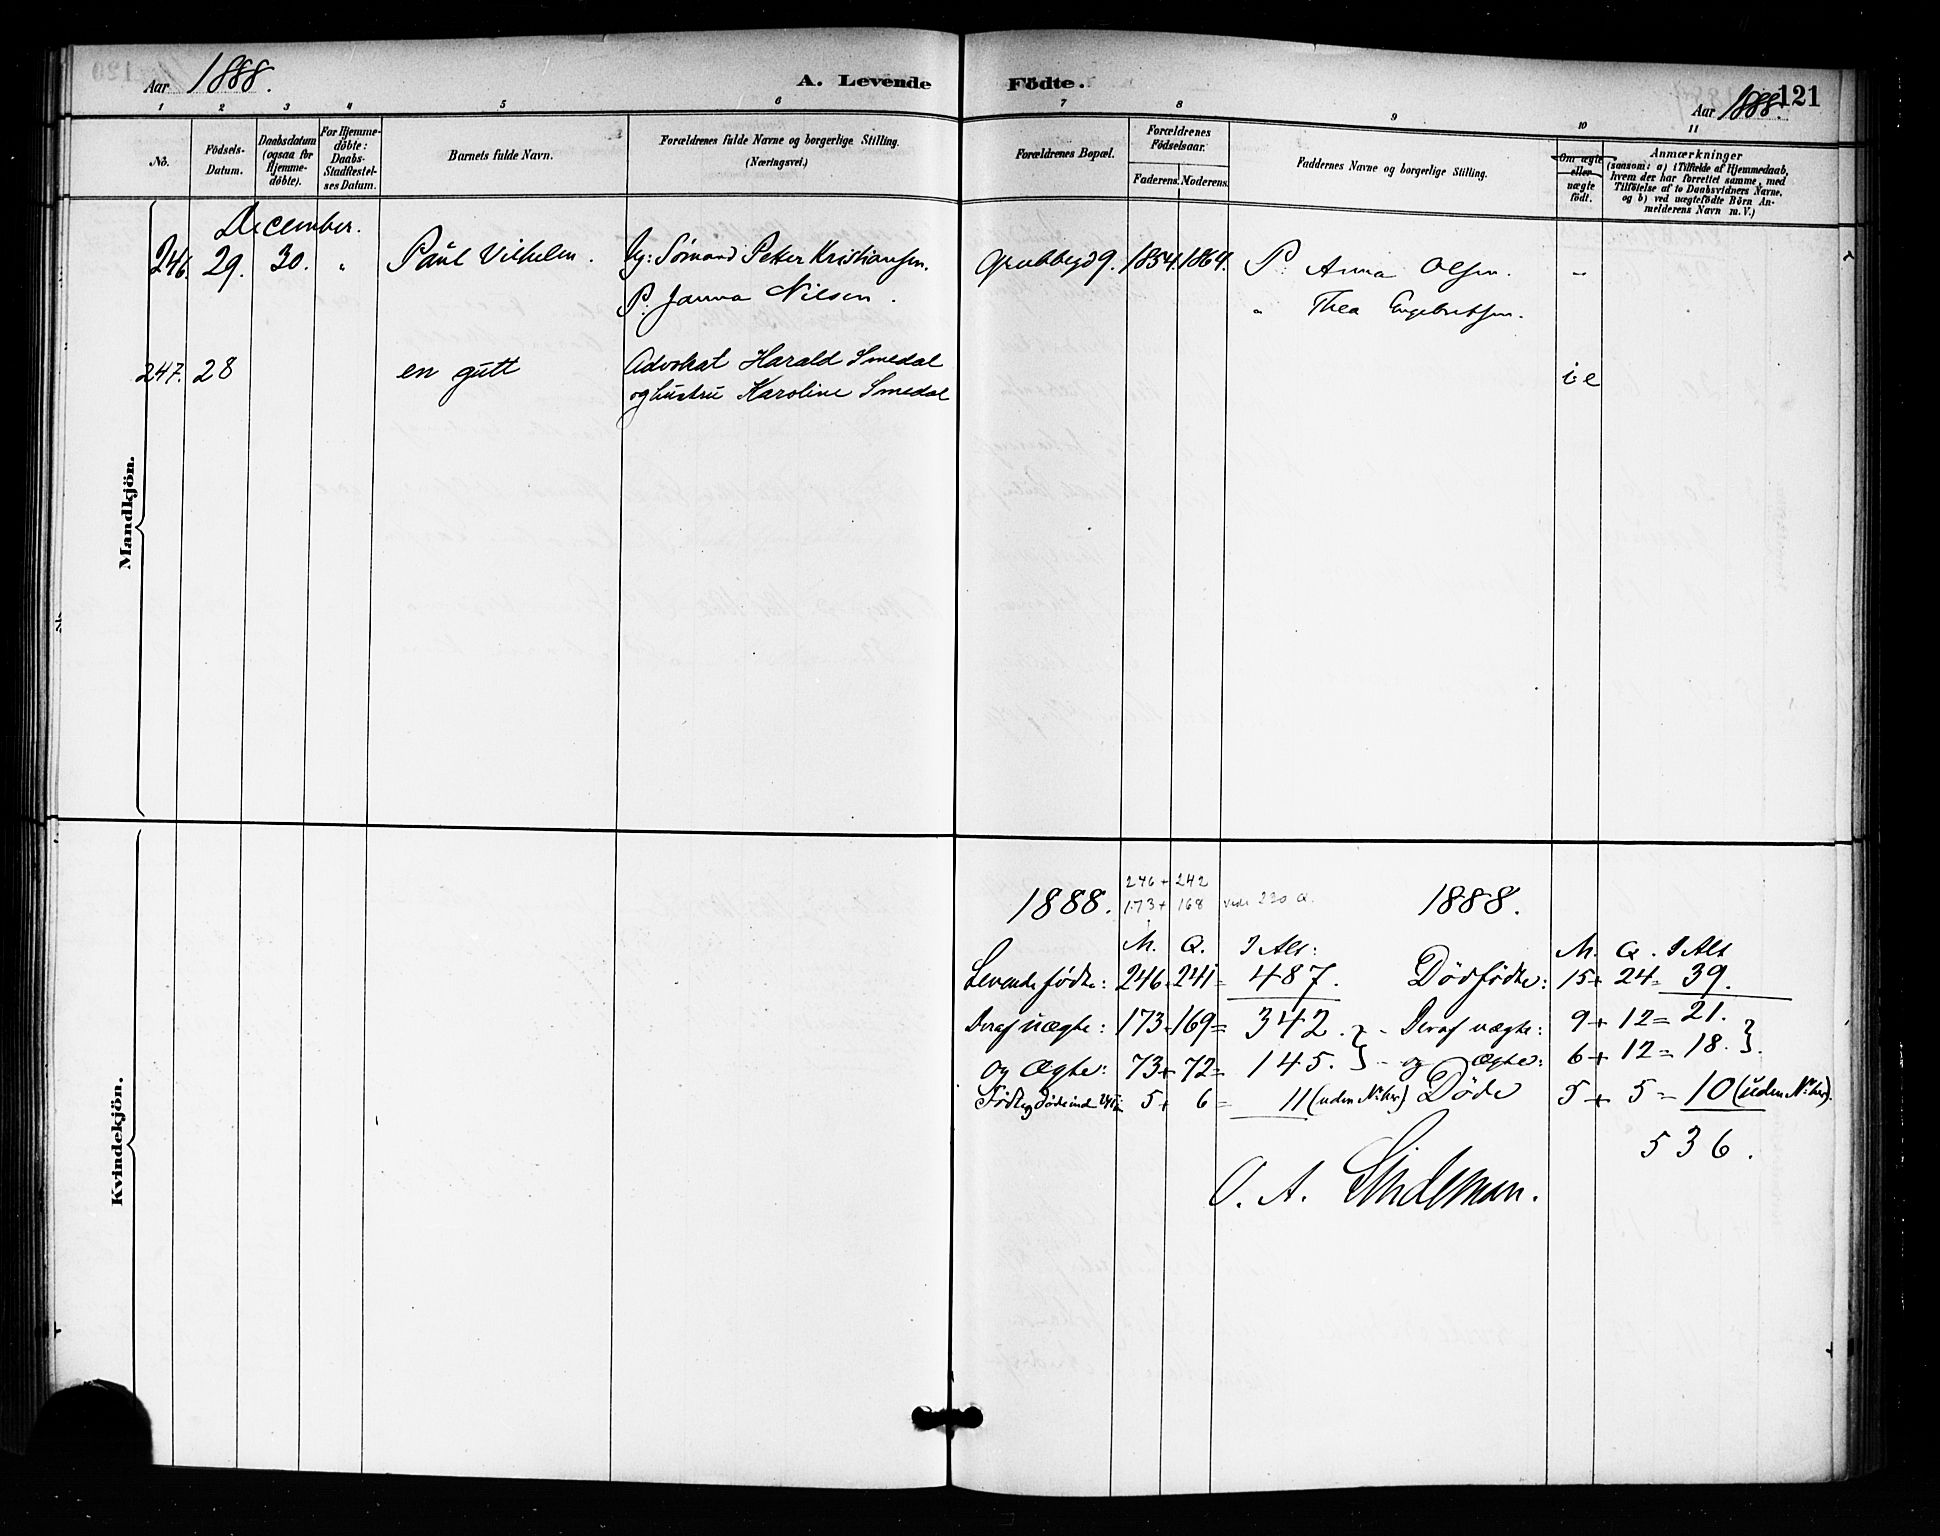 Aar 1888.
A. Levende Födte.
Aar 1888. 121
1 2 3 4 5 6 7 8 9 10 11
No.
Födsels-
Datum.
Daabsdatum
(ogsaa for
Hjemme-
döbte).
For Hjemme-
döbte:
Daabs-
Stadfæstel-
ses Datum.
Barnets fulde Navn.
Forældrenes fulde Navne og borgerlige Stilling.
(Næringsvei.)
Forældrenes Bopæl.
Forældrenes
Födselsaar.
Faderens. Moderens.
Faddernes Navne og borgerlige Stilling.
Om ægte
eller
uægte
födt.
Anmærkninger
(saasom: a) i Tilfælde af Hjemmedaab,
hvem der har forrettet samme, med
Tilföielse af to Daabsvidners Navne,
og b) ved uægtefödte Börn An-
melderens Navn m. V.)
Mandkjön.
December.
246. 29. 30. " Paul Vilhelm. Ug: Sömand Petter Kristiansen. Grubbegd 9. 1854. 1864. P. Anna Olsen. "
P. Janna Nilsen. " Thea Engebretsen.
247. 28 en gutt Advokat Harald Smedal i e
og hustru Karoline Smedal
Kvindekjön.
246 + 242
173 + 168 vide 220 a.
1888. 1888.
M. Q. I Alt: M. Q. I Alt
Levende födte: 246 + 241 = 487. Dödfödte: 15 + 24 = 39.
Deraf uægte: 173 + 169 = 342. } - Deraf uægte: 9 + 12 = 21.
og Ægte: 73 + 72 = 145. } - og Ægte: 6 + 12 = 18. }.
Födte og döde ind 24 Tim 5 + 6 = 11 (uden No her) Döde 5 + 5 = 10 (uden No her).
536.
O. A. Lindeman.